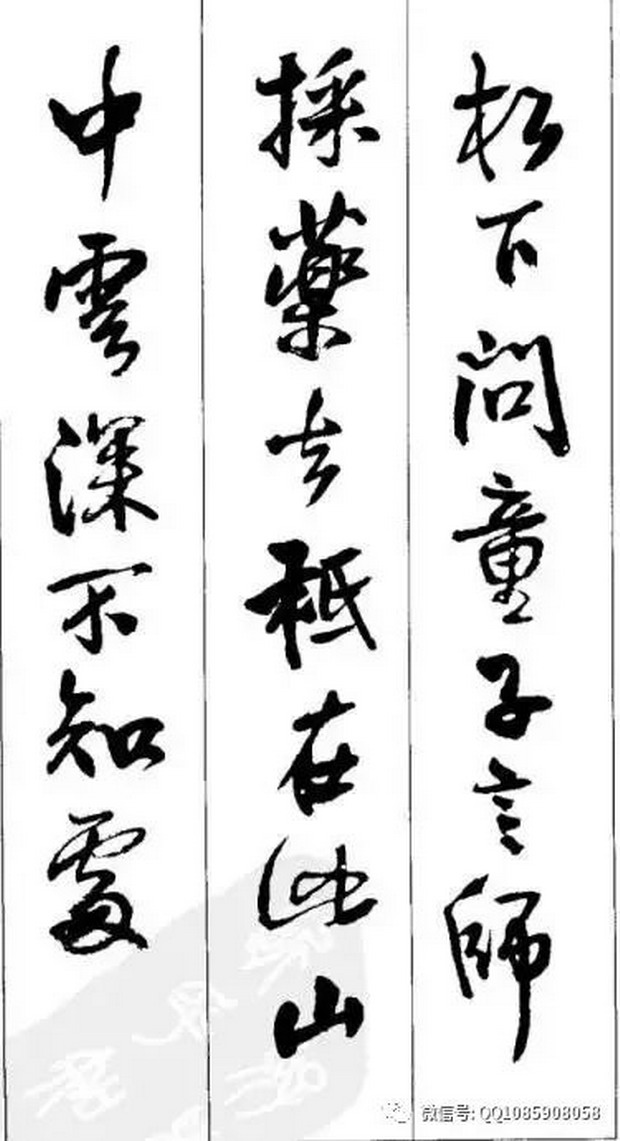 松下問童子言師
採藥去秖在此山
中雲深不知處
微信号: QQ1085908058